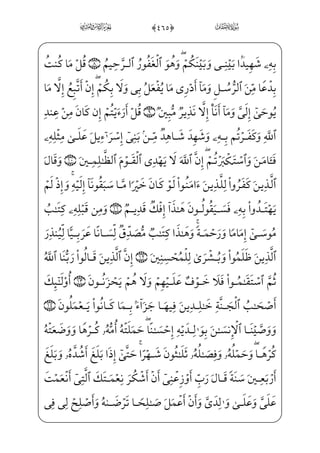 ﴿٤٦٥﴾
بِهِۦ شَهِيدًۢا بَيْنِى وَبَيْنَكُمْ ۖ وَهُوَ ٱلْغَفُورُ ٱلرَّحِيمُ ۝٨ قُلْ مَا كُنتُ
بِدْعًا مِّنَ ٱلرُّسُلِ وَمَآ أَدْرِى مَا يُفْعَلُ بِى وَلَا بِكُمْ ۖ إِنْ أَتَّبِعُ إِلَّا مَا
يُوحَىٰٓ إِلَىَّ وَمَآ أَنَا۠ إِلَّا نَذِيرٌ مُّبِينٌ ۝٩ قُلْ أَرَءَيْتُمْ إِن كَانَ مِنْ عِندِ
ٱللَّهِ وَكَفَرْتُم بِهِۦ وَشَهِدَ شَاهِدٌ مِّنۢ بَنِىٓ إِسْرَٰٓءِيلَ عَلَىٰ مِثْلِهِۦ
فَـَٔامَنَ وَٱسْتَكْبَرْتُمْ ۖ إِنَّ ٱللَّهَ لَا يَهْدِى ٱلْقَوْمَ ٱلظَّٰلِمِينَ ۝١٠ وَقَالَ
ٱلَّذِينَ كَفَرُوا۟ لِلَّذِينَ ءَامَنُوا۟ لَوْ كَانَ خَيْرًا مَّا سَبَقُونَآ إِلَيْهِ ۚ وَإِذْ لَمْ
يَهْتَدُوا۟ بِهِۦ فَسَيَقُولُونَ هَٰذَآ إِفْكٌ قَدِيمٌ ۝١١ وَمِن قَبْلِهِۦ كِتَٰبُ
مُوسَىٰٓ إِمَامًا وَرَحْمَةً ۚ وَهَٰذَا كِتَٰبٌ مُّصَدِّقٌ لِّسَانًا عَرَبِيًّا لِّيُنذِرَ
ٱلَّذِينَ ظَلَمُوا۟ وَبُشْرَىٰ لِلْمُحْسِنِينَ ۝١٢ إِنَّ ٱلَّذِينَ قَالُوا۟ رَبُّنَا ٱللَّهُ
ثُمَّ ٱسْتَقَٰمُوا۟ فَلَا خَوْفٌ عَلَيْهِمْ وَلَا هُمْ يَحْزَنُونَ ۝١٣ أُو۟لَٰٓئِكَ
أَصْحَٰبُ ٱلْجَنَّةِ خَٰلِدِينَ فِيهَا جَزَآءًۢ بِمَا كَانُوا۟ يَعْمَلُونَ ۝١٤
وَوَصَّيْنَا ٱلْإِنسَٰنَ بِوَٰلِدَيْهِ إِحْسَٰنًا ۖ حَمَلَتْهُ أُمُّهُۥ كُرْهًا وَوَضَعَتْهُ
كُرْهًا ۖ وَحَمْلُهُۥ وَفِصَٰلُهُۥ ثَلَٰثُونَ شَهْرًا ۚ حَتَّىٰٓ إِذَا بَلَغَ أَشُدَّهُۥ وَبَلَغَ
أَرْبَعِينَ سَنَةً قَالَ رَبِّ أَوْزِعْنِىٓ أَنْ أَشْكُرَ نِعْمَتَكَ ٱلَّتِىٓ أَنْعَمْتَ
عَلَىَّ وَعَلَىٰ وَٰلِدَىَّ وَأَنْ أَعْمَلَ صَٰلِحًا تَرْضَىٰهُ وَأَصْلِحْ لِى فِى